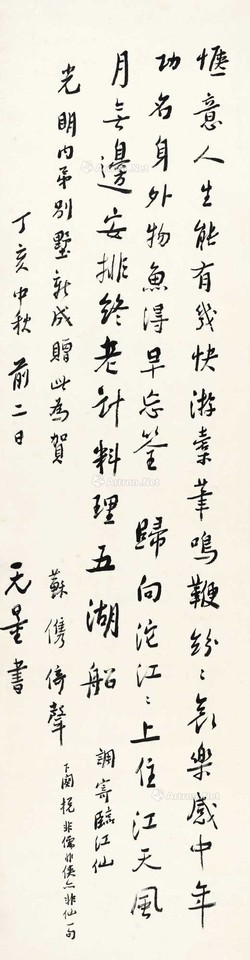 愜意人生能有幾快游橐筆鳴鞭紛〻哀樂感中年
功名身外物魚得早忘筌 歸向沱江〻上住江天風
月無邊安排終老計料理五湖船 調寄臨江仙
下闋脫非儒非俠亦非仙一句
光明內弟別墅新成贈此為賀 蘇儁倚聲
丁亥中秋前二日 无量書
Artron.Net